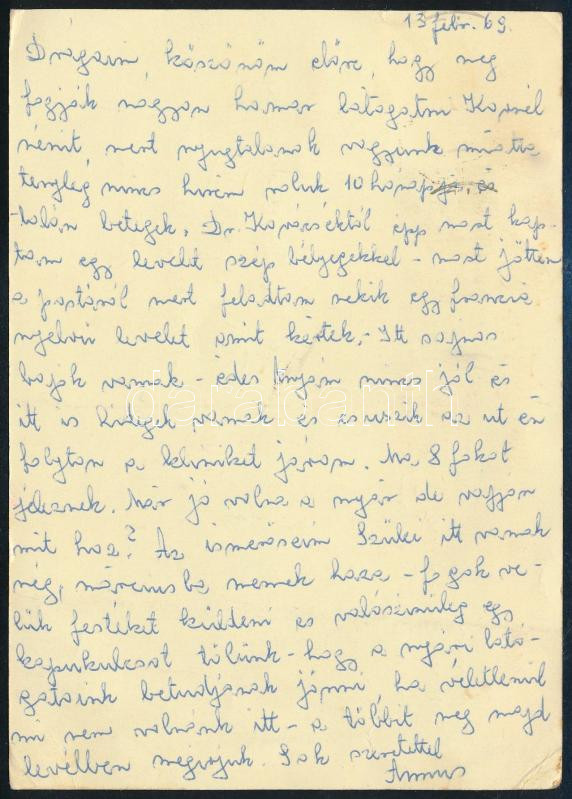 13 febr. 69.
Drágáim, köszönöm előre, hogy meg
fogják nagyon hamar látogatni Kornél
nénit, mert nyugtalanok vagyunk miatta
tényleg nincs hirem róluk 10 hónapja, és
talán betegek. Dr. Kovácséktól épp most kap-
tam egy levelet szép bélyegekkel - most jöttem
a postáról mert feladtam nekik egy francia
nyelvü levelet amit kértek. - Itt sajnos
bajok vannak - édes Anyám nincs jól és
itt is hidegek vannak és csuszik az ut én
folyton a kliniket járom. Ma 8 fokot
jeleznek. Már jó volna a nyár de vajjon
mit hoz? Az ismerőseim Szülei itt vannak
még, márciusba mennek haza - fogok ve-
lük festéket küldeni és valószinüleg egy
kapukulcsot tőlünk - hogy a nyári láto-
gatóink betudjanak jönni, ha véletlenül
mi nem volnánk itt - a többit meg majd
levélben megirjuk. Sok szeretettel
Annus
darabanth